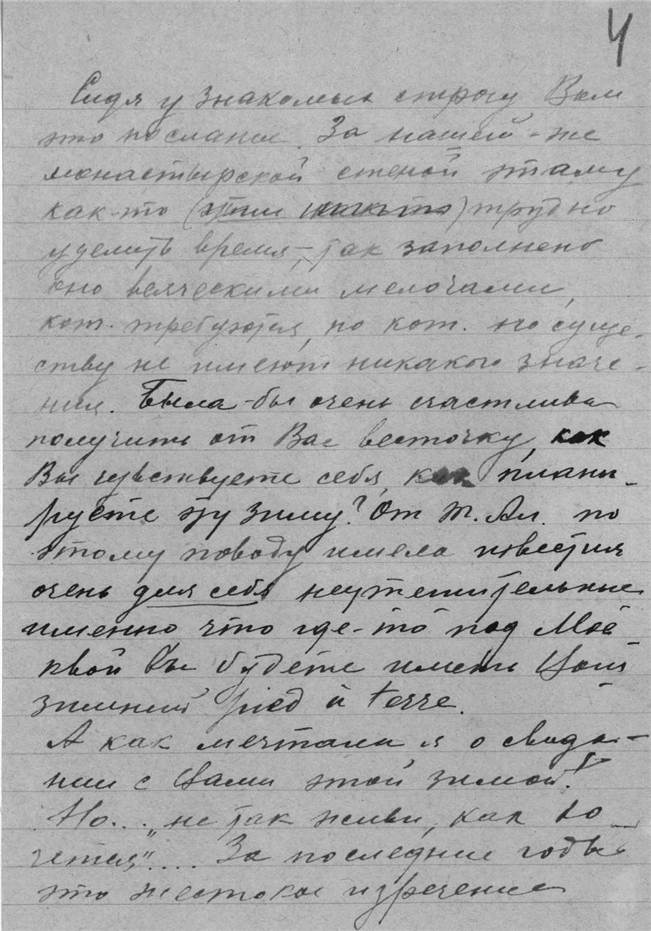 4
Сидя у знакомых строчу Вам
это послание. За нашей-же
монастырской стеной этому
как-то (этим ) трудно
уделить время,– так заполнено
оно всяческими мелочами,
кот. требуются, но кот. по суще-
ству не имеют никакого значе-
ния. Была-бы очень счастлива
получить от Вас весточку, как
Вы чувствуете себя, как плани-
руете эту зиму? От Т. Ал. по
этому поводу имела известия
очень для себя неутешительные
именно что где-то под Мос
квой Вы будете иметь Ваш
зимний pied à terre.
А как мечтала я о свида-
нии с Вами этой зимой!
Но... „не так живи, как хо-
чется".... За последние годы
это жестокое изречение